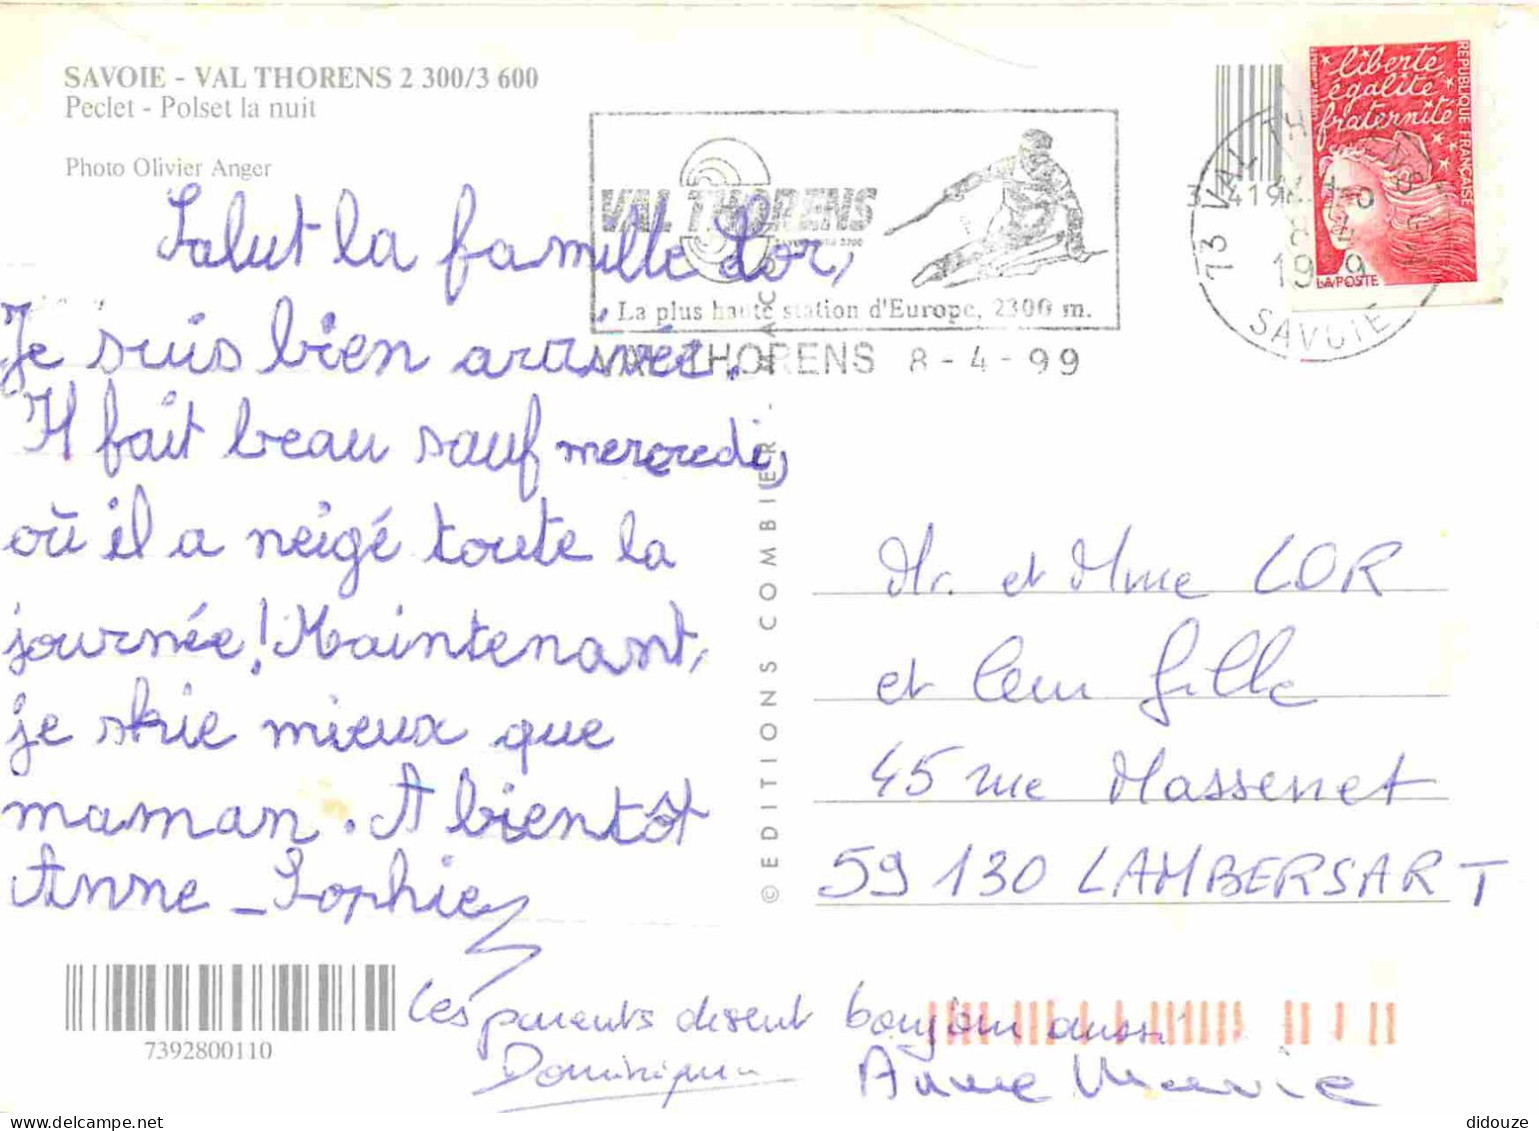 SAVOIE - VAL THORENS 2 300/3 600
Peclet - Polset la nuit
Photo Olivier Anger
VAL THORENS
La plus haute station d'Europe, 2300 m.
VAL THORENS 8 - 4 - 99
73 VAL THORENS
SAVOIE
liberté
égalité
fraternité
REPUBLIQUE FRANÇAISE
LA POSTE
Salut la famille Lor,
Je suis bien arrivée.
Il fait beau sauf mercredi,
où il a neigé toute la
journée! Maintenant,
je skie mieux que
maman. A bientôt
Anne-Sophie
© EDITIONS COMBIER
Mr. et Mme LOR
et leur fille
45 rue Massenet
59130 LAMBERSART
Les parents disent bonjour aussi
Dominique
Anne Marie
7392800110
didouze